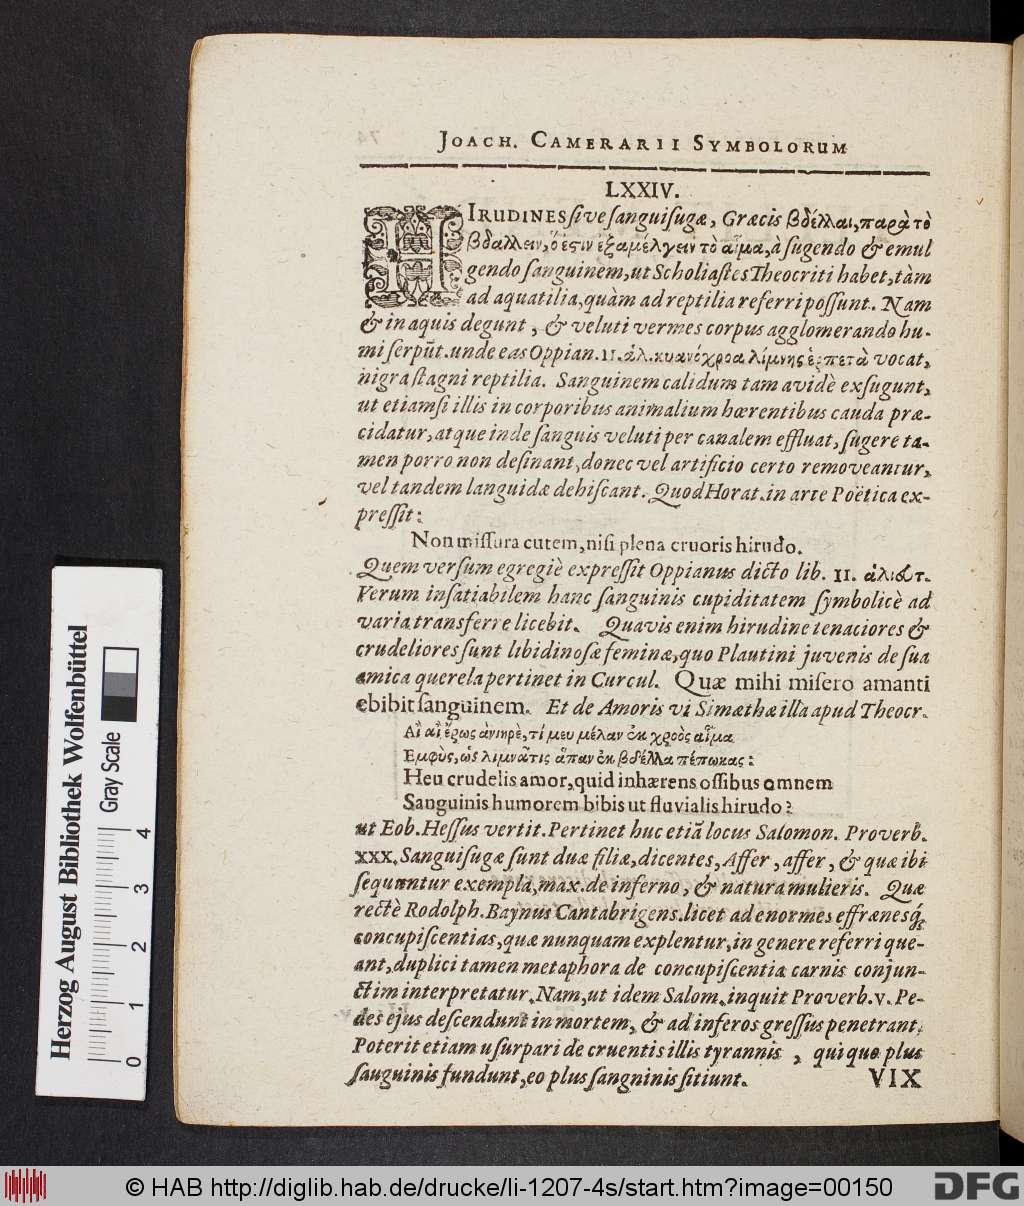 JOACH. CAMERARII SYMBOLORUM
LXXIV.
HIRUDINES sive sanguisugæ, Græcis βδέλλαι, παρὰ τὸ
βδάλλειν, ὅ ἐστιν ἐξαμέλγειν τὸ αἷμα, à sugendo & emul
gendo sanguinem, ut Scholiastes Theocriti habet, tàm
ad aquatilia, quàm ad reptilia referri possunt. Nam
& in aquis degunt, & veluti vermes corpus agglomerando hu-
mi serpūt. unde eas Oppian. II. ἁλ. κυανόχροα λίμνης ἑρπετὰ vocat,
nigra stagni reptilia. Sanguinem calidum tam avidè exsugunt,
ut etiamsi illis in corporibus animalium hærentibus cauda præ-
cidatur, atque inde sanguis veluti per canalem effluat, sugere ta-
men porro non desinant, donec vel artificio certo removeantur,
vel tandem languidæ dehiscant. Quod Horat. in arte Poëtica ex-
pressit:
Non missura cutem, nisi plena cruoris hirudo.
Quem versum egregiè expressit Oppianus dicto lib. II. ἁλιευτ.
Verum insatiabilem hanc sanguinis cupiditatem symbolicè ad
varia transferre licebit. Quavis enim hirudine tenaciores &
crudeliores sunt libidinosæ feminæ, quo Plautini juvenis de sua
amica querela pertinet in Curcul. Quæ mihi misero amanti
ebibit sanguinem. Et de Amoris vi Simætha illa apud Theocr.
Αἲ αἲ ἔρως ἀνιηρὲ, τί μευ μέλαν ἐκ χροὸς αἷμα
Εμφὺς, ὡς λιμνᾶτις ἅπαν ἐκ βδέλλα πέπωκας:
Heu crudelis amor, quid inhærens ossibus omnem
Sanguinis humorem bibis ut fluvialis hirudo?
ut Eob. Hessus vertit. Pertinet huc etiā locus Salomon. Proverb.
XXX. Sanguisugæ sunt duæ filiæ, dicentes, Affer, affer, & quæ ibi
sequuntur exempla, max. de inferno, & natura mulieris. Quæ
rectè Rodolph. Baynus Cantabrigens. licet ad enormes effrænesq́;
concupiscentias, quæ nunquam explentur, in genere referri que-
ant, duplici tamen metaphora de concupiscentia carnis conjun-
ctim interpretatur. Nam, ut idem Salom. inquit Proverb. v. Pe-
des ejus descendunt in mortem, & ad inferos gressus penetrant.
Poterit etiam usurpari de cruentis illis tyrannis, qui quo plus
sauguinis fundunt, eo plus sangninis sitiunt.
VIX
Herzog August Bibliothek Wolfenbüttel
Gray Scale
0 1 2 3 4
© HAB http://diglib.hab.de/drucke/li-1207-4s/start.htm?image=00150
DFG